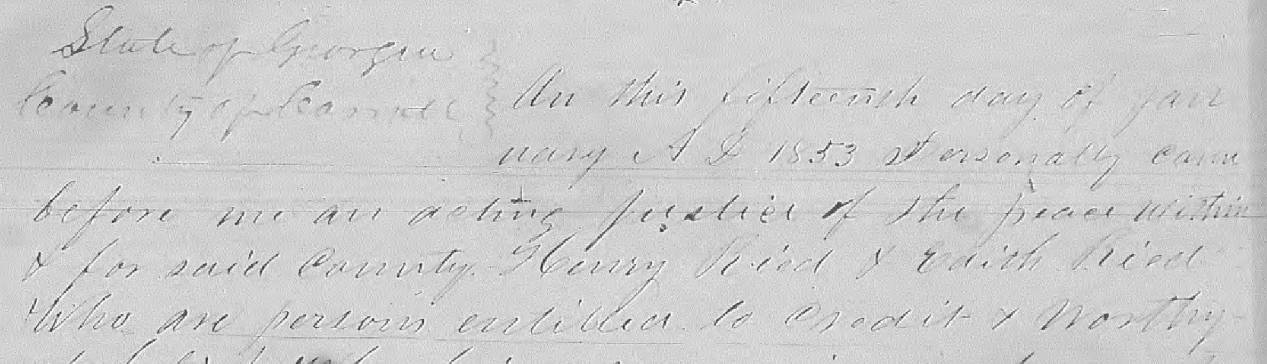 State of Georgia
County of Carroll
On this fifteenth day of Jan
uary A D 1853 Personally came
before me an acting justice of the peace within
& for said County Henry Ried & Edith Ried
Who are persons entitled to Credit & Worthy